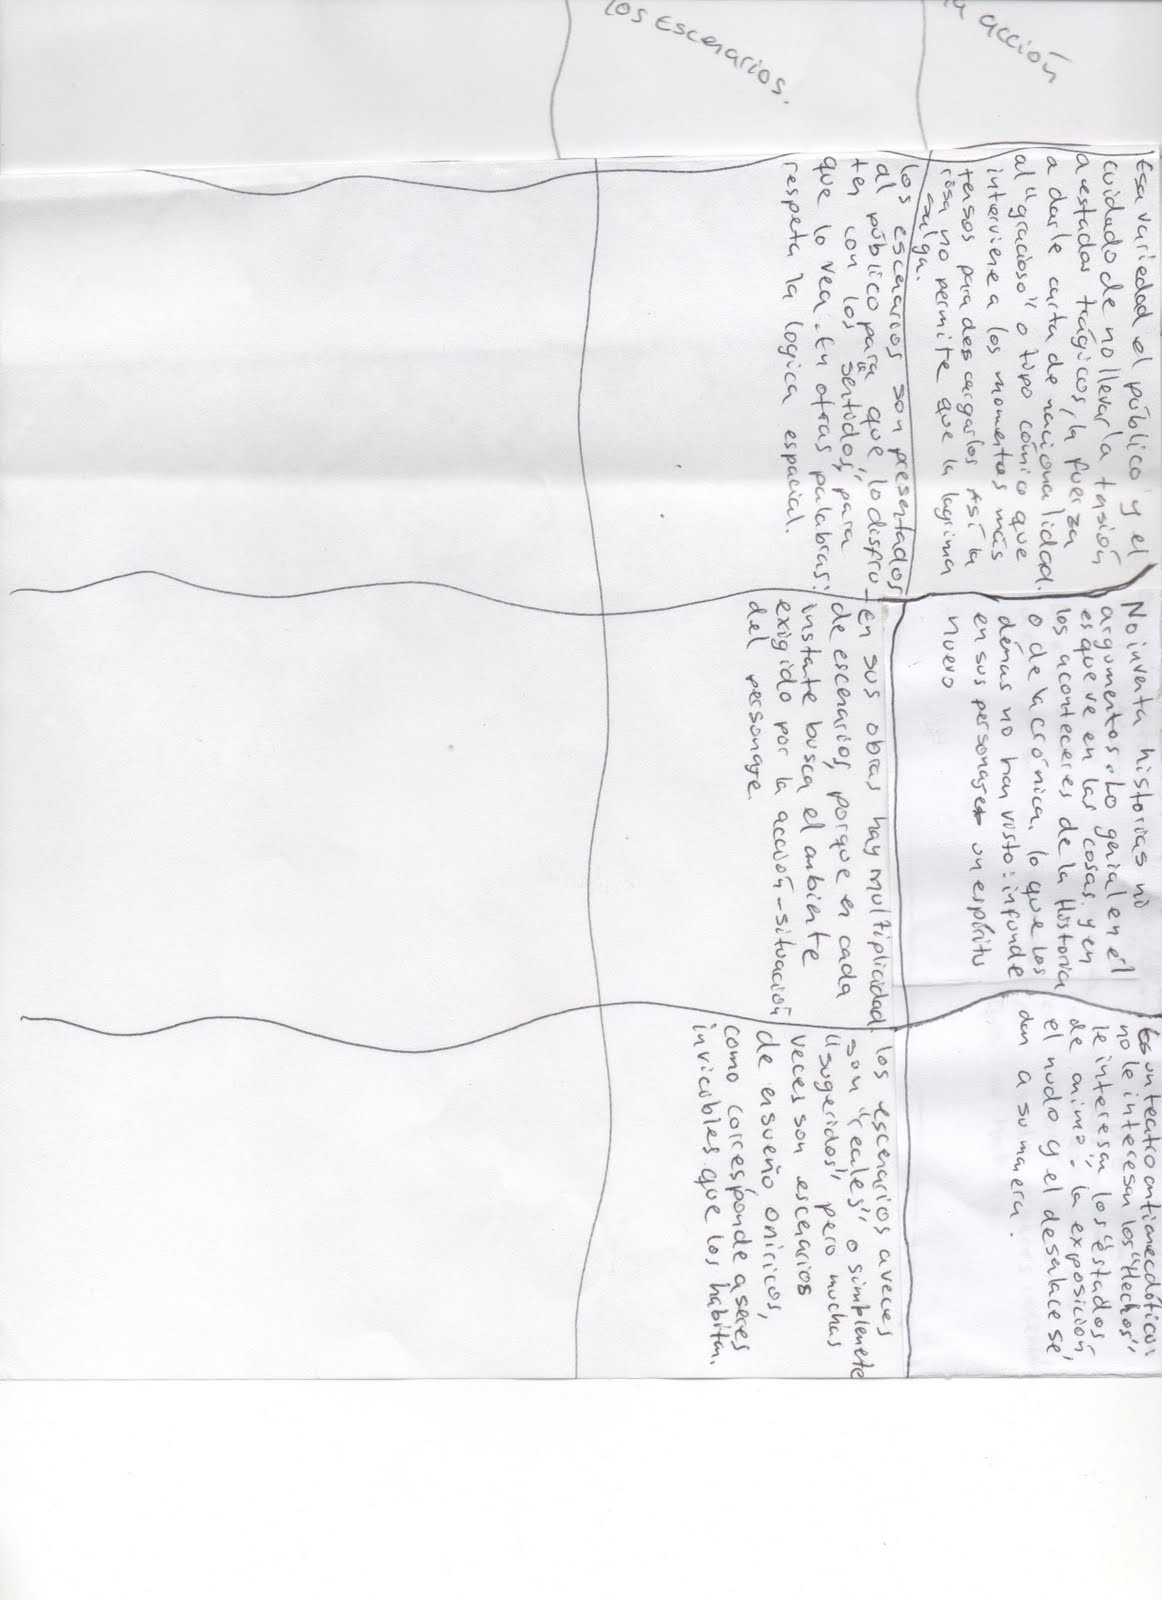 la acción
Esa variedad el público y el
cuidado de no llevar la tensión
a estados trágicos, la fuerza
a darle carta de nacionalidad
al "gracioso" o tipo cómico que
interviene a los momentos más
tensos para descargarlos Así la
risa no permite que la lagrima
salga.
No inventa historias ni
argumentos. Lo genial en él
es que ve en las cosas, y en
los aconteceres de la Historia
o de la crónica, lo que los
démas no han visto: infunde
en sus personajes un espíritu
nuevo
Es un teatro antianecdótico:
no le interesan los "Hechos",
le interesan los "estados
de animo": la exposición,
el nudo y el desalace se
dan a su manera.
los Escenarios.
los escenarios son presentados
al público para que lo disfru-
ten con los "sentidos", para
que lo vea. En otras palabras:
respeta la logica espacial.
en sus obras hay multiplicidad
de escenarios, porque en cada
instate busca el ambiente
exigido por la acción - situación
del personaje.
los escenarios aveces
son "reales", o simplemete
"sugeridos", pero muchas
veces son escenarios
de ensueño oniricos,
como corresponde a seres
invicibles que los habitan.